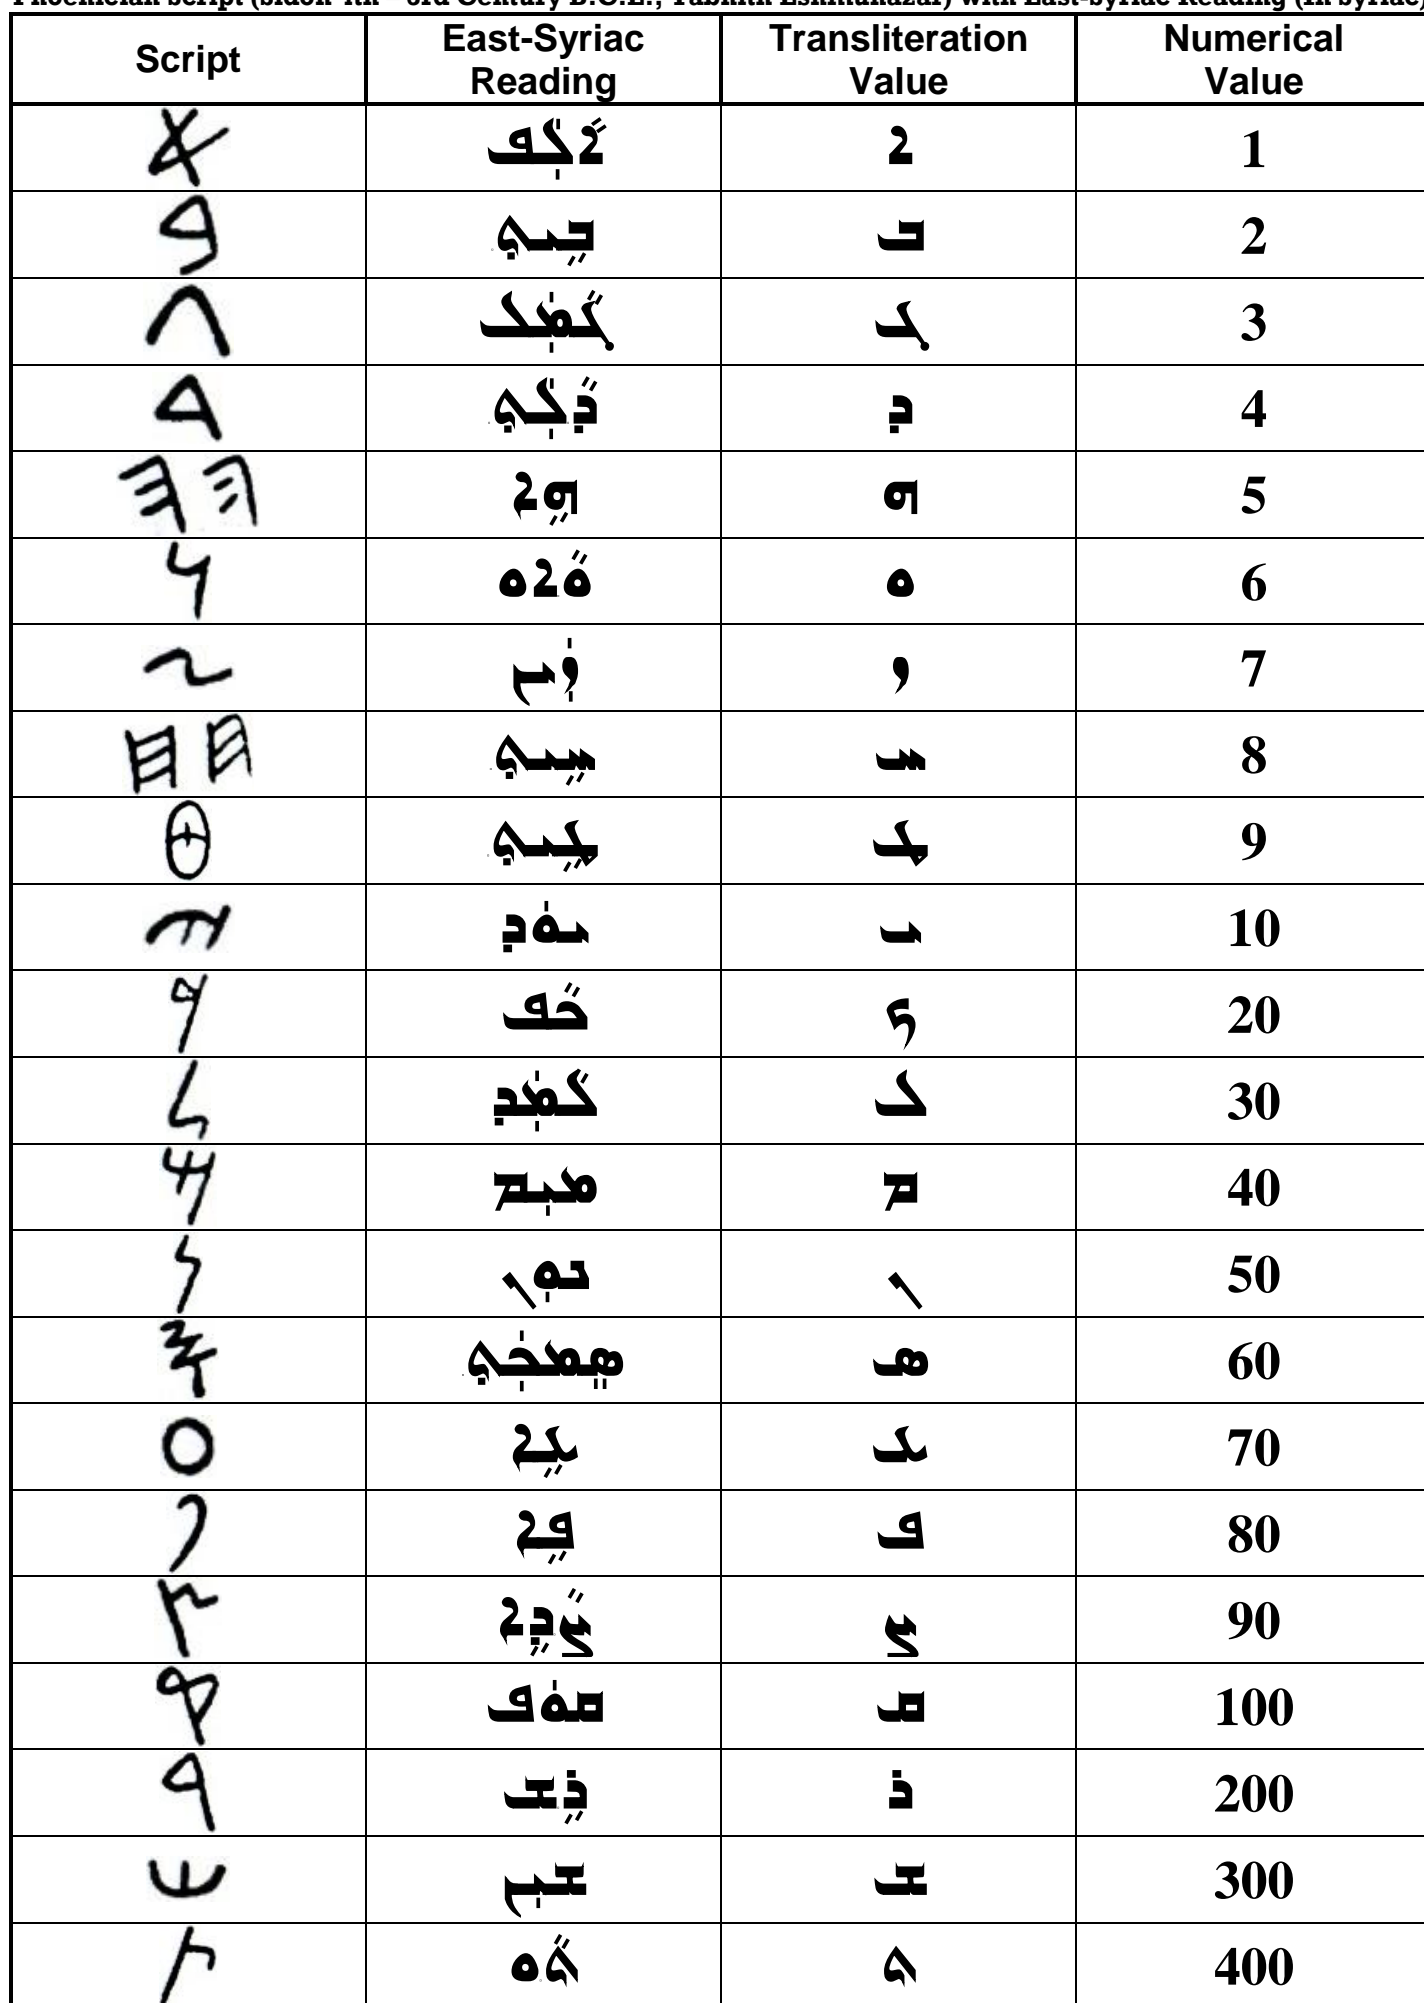 Phoenician Script (Sidon 4th - 3rd Century B.C.E., Tabnith Eshmunazar) with East-Syriac Reading (in Syriac)
Script East-Syriac Reading Transliteration Value Numerical Value
𐤀 ܐܵܠܲܦ ܐ 1
𐤁 ܒܹܝܬ ܒ 2
𐤂 ܓܵܡܲܠ ܓ 3
𐤃 ܕܵܠܲܬ ܕ 4
𐤄 𐤄 ܗܹܐ ܗ 5
𐤅 ܘܵܐܘ ܘ 6
𐤆 ܙܲܝܢ ܙ 7
𐤇 𐤇 ܚܹܝܬ ܚ 8
𐤈 ܛܹܝܬ ܛ 9
𐤉 ܝܘܿܕ ܝ 10
𐤊 ܟܵܦ ܟ 20
𐤋 ܠܵܡܲܕ ܠ 30
𐤌 ܡܝܼܡ ܡ 40
𐤍 ܢܘܼܢ ܢ 50
𐤎 ܣܸܡܟܲܬ ܣ 60
𐤏 ܥܹܐ ܥ 70
𐤐 ܦܹܐ ܦ 80
𐤑 ܨܵܕܹܐ ܨ 90
𐤒 ܩܘܿܦ ܩ 100
𐤓 ܪܹܫ ܪ 200
𐤔 ܫܝܼܢ ܫ 300
𐤕 ܬܵܘ ܬ 400